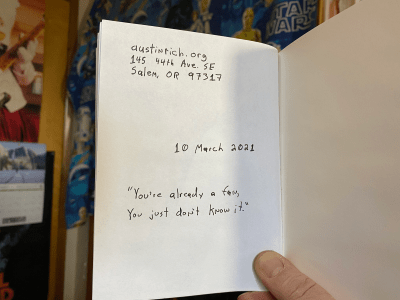 austinrich.org
145 44th Ave. SE
Salem, OR 97317
10 March 2021
"You're already a fan,
You just don't know it."
STAR
WARS